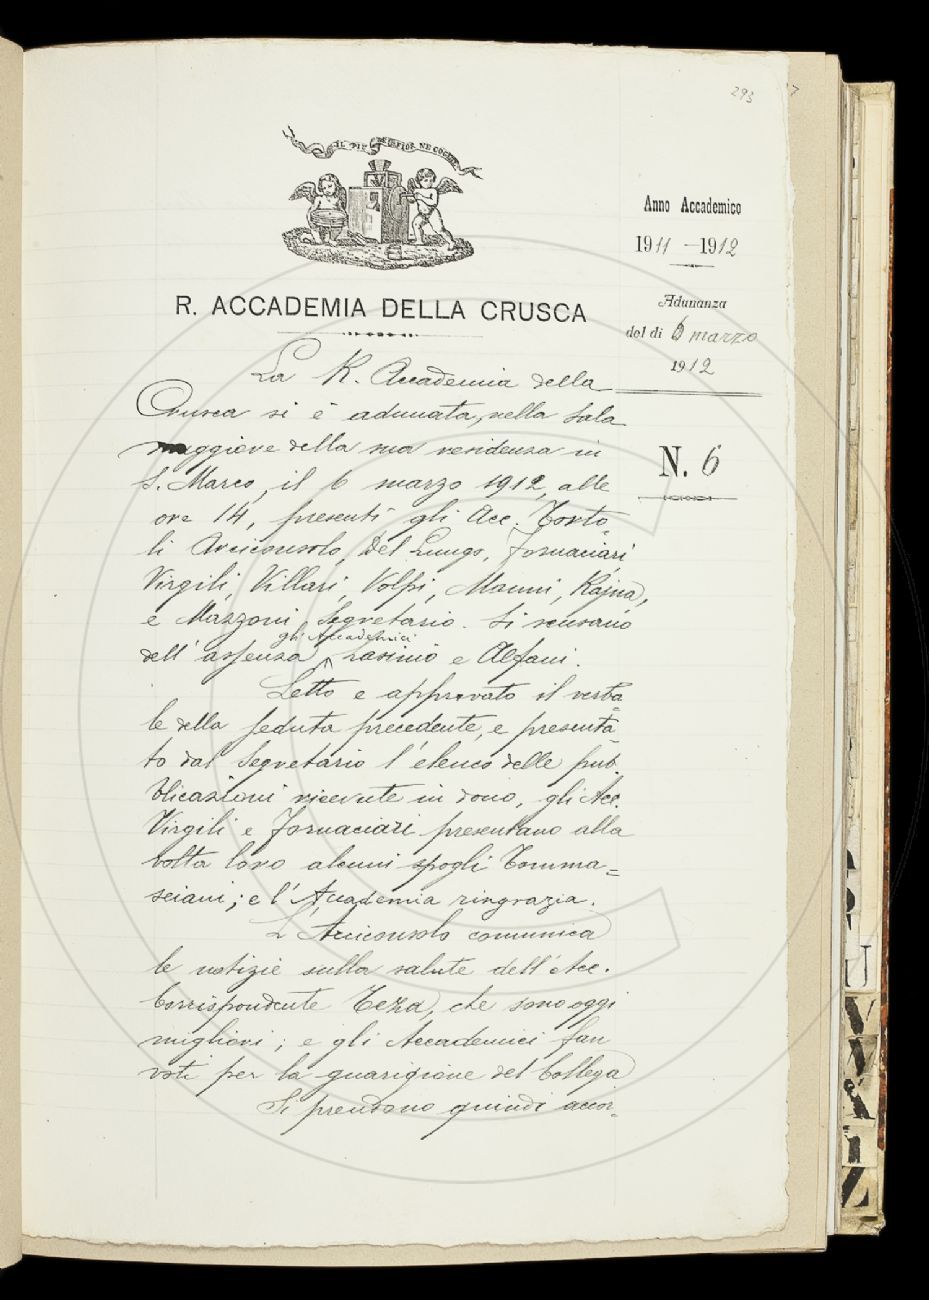 293
IL PIÙ BEL FIOR NE COGLIE
Anno Accademico
1911 - 1912
R. ACCADEMIA DELLA CRUSCA
Adunanza
del di 6 marzo
1912
N. 6
La R. Accademia della
Crusca si è adunata, nella sala
maggiore della sua residenza in
S. Marco, il 6 marzo 1912, alle
ore 14, presenti gli Acc. Torto-
li Arciconsolo, Del Lungo, Fornaciari,
Virgili, Villari, Volpi, Manni, Rajna,
e Mazzoni, Segretario. Si scusano
gli Accademici
dell'assenza Lasinio e Alfani.
Letto e approvato il verba=
le della seduta precedente, e presenta=
to dal Segretario l'elenco delle pub=
blicazioni ricevute in dono, gli Acc.
Virgili e Fornaciari presentano alla
volta loro alcuni spogli Tomma=
seiani; e l'Accademia ringrazia.
L'Arciconsolo comunica
le notizie sulla salute dell'Acc.
Corrispondente Teza, che sono oggi
migliori; e gli Accademici fan
voti per la guarigione del Collega
Si prendono quindi accor=